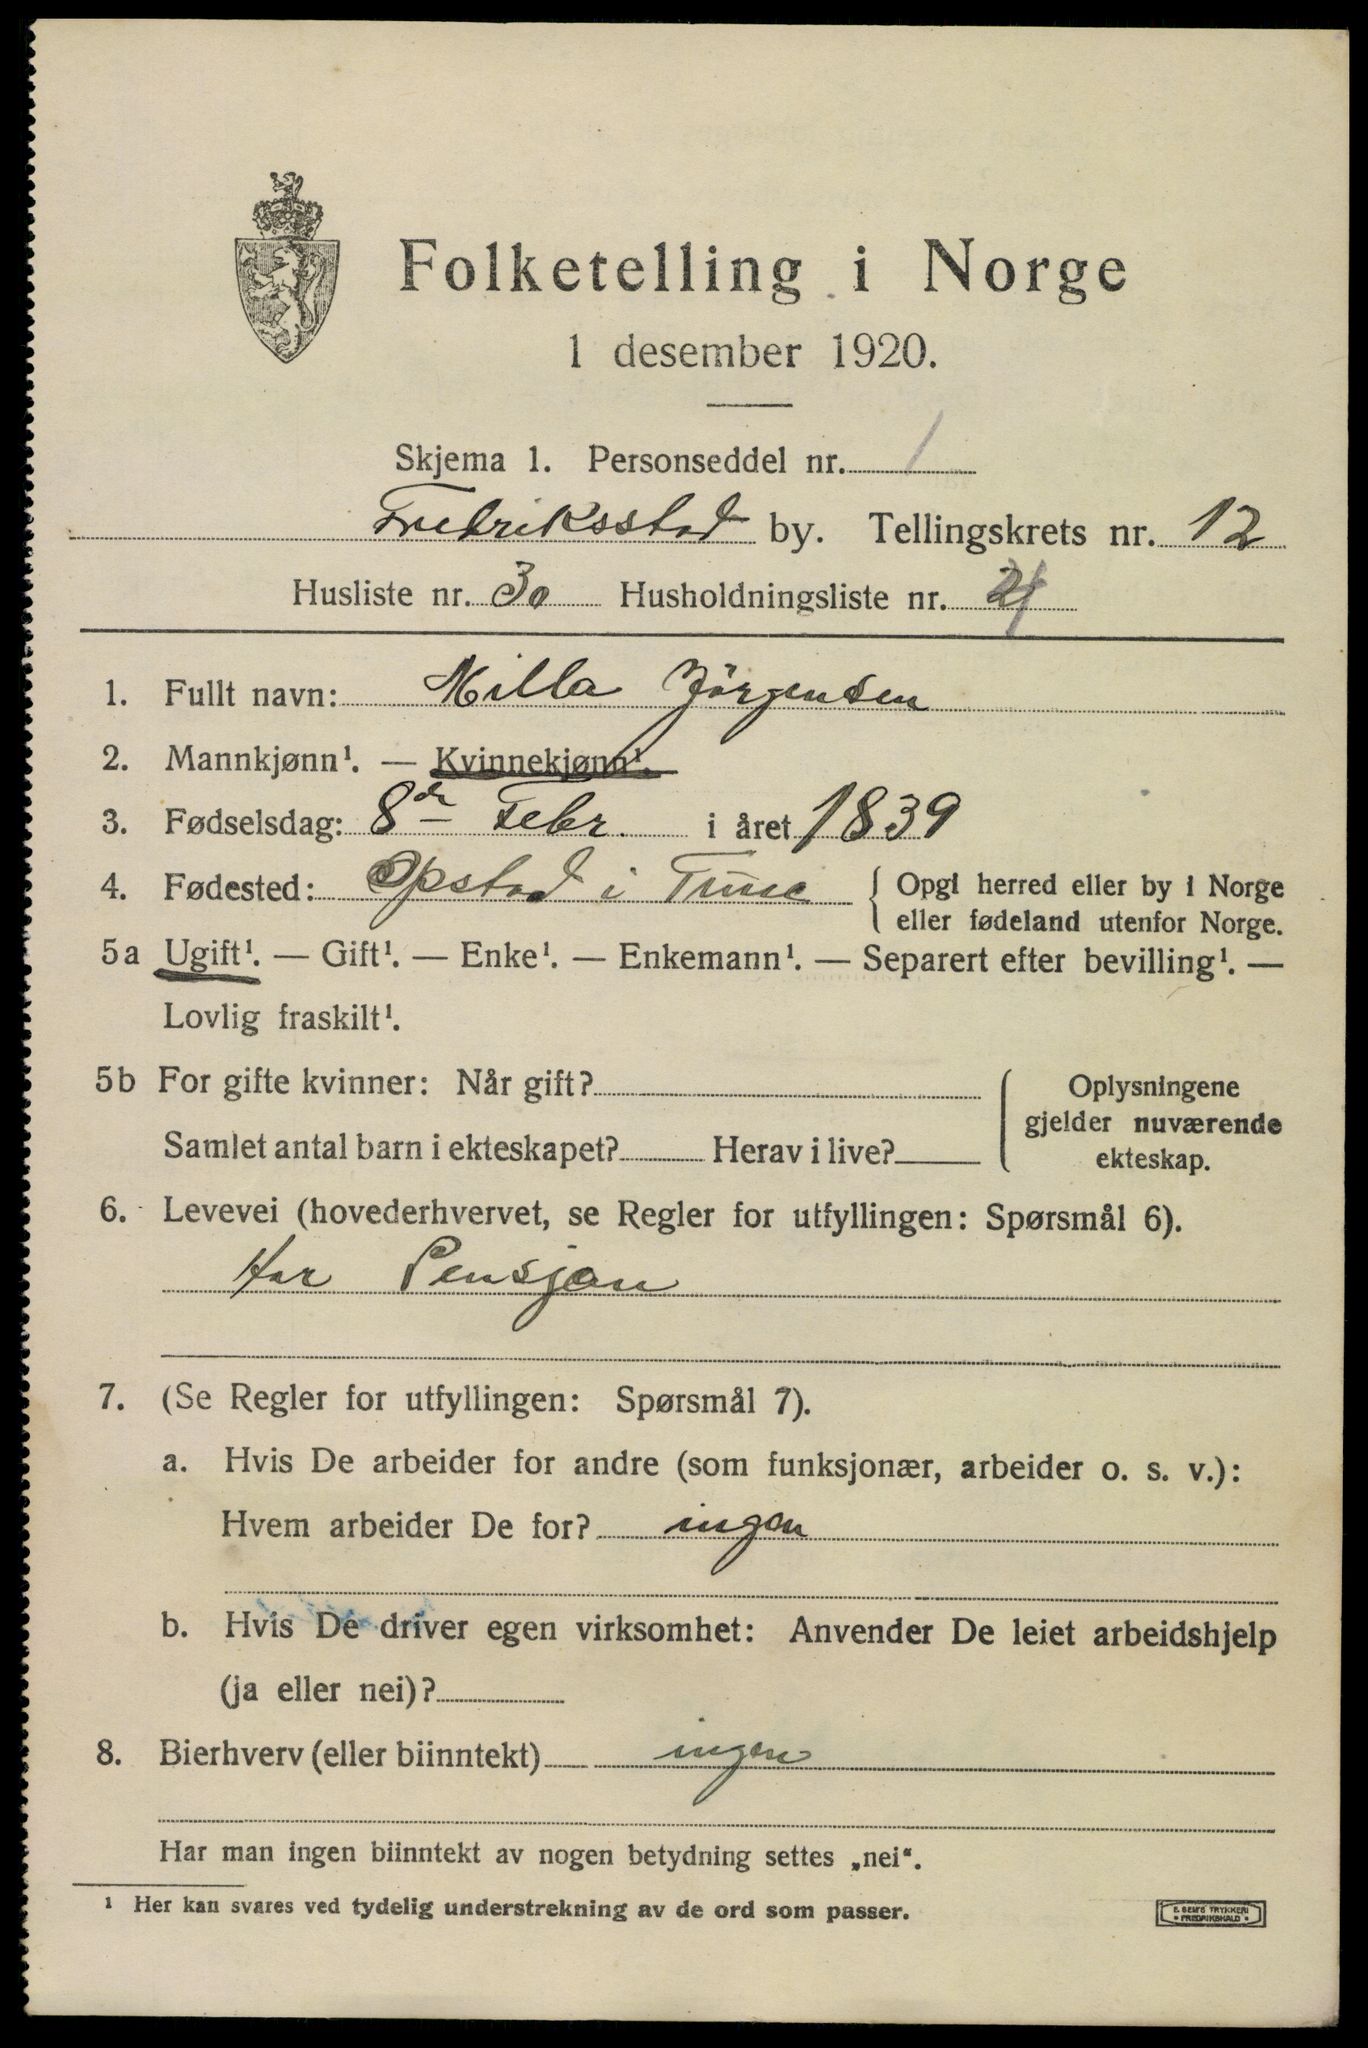 Folketelling i Norge
1 desember 1920.
Skjema 1. Personseddel nr. 1
Fredriksstad by. Tellingskrets nr. 12
Husliste nr. 30 Husholdningsliste nr.
1. Fullt navn: Milla Jörgensen
2. Mannkjønn¹. — Kvinnekjønn¹.
3. Fødselsdag: 8de Febr. i året 1839
4. Fødested: Opstad i Tune { Opgi herred eller by i Norge
eller fødeland utenfor Norge.
5a Ugift¹. — Gift¹. — Enke¹. — Enkemann¹. — Separert efter bevilling¹. —
Lovlig fraskilt¹.
5b For gifte kvinner: Når gift?
Samlet antal barn i ekteskapet? Herav i live?
Oplysningene
gjelder nuværende
ekteskap.
6. Levevei (hovederhvervet, se Regler for utfyllingen: Spørsmål 6).
Har Pensjon
7. (Se Regler for utfyllingen: Spørsmål 7).
a. Hvis De arbeider for andre (som funksjonær, arbeider o. s. v.):
Hvem arbeider De for? ingen
b. Hvis De driver egen virksomhet: Anvender De leiet arbeidshjelp
(ja eller nei)?
8. Bierhverv (eller biinntekt) ingen
Har man ingen biinntekt av nogen betydning settes „nei“.
¹ Her kan svares ved tydelig understrekning av de ord som passer.
E. SEM'S TRYKKERI
• FREDRIKSHALD •